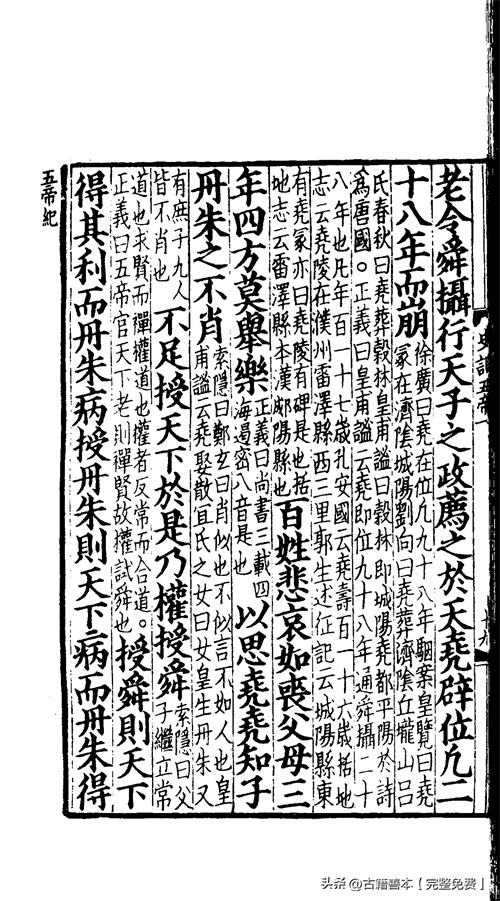 史記五帝一
十九
老令舜攝行天子之政薦之於天堯辟位凡二
十八年而崩
徐廣曰堯在位凡九十八年駰案皇覽曰堯
冢在濟陰城陽劉向曰堯葬濟陰丘壠山呂
氏春秋曰堯葬穀林皇甫謐曰穀林即城陽堯都平陽於詩
爲唐國。正義曰皇甫謐云堯即位九十八年通舜攝二十
八年也凡年百一十七歲孔安國云堯壽百一十六歲括地
志云堯陵在濮州雷澤縣西三里郭生述征記云城陽縣東
有堯冢亦曰堯陵有碑是也括
地志云雷澤縣本漢郕陽縣也
百姓悲哀如喪父母三
年四方莫舉樂
正義曰尚書三載四
海遏密八音是也
以思堯堯知子
丹朱之不肖
索隱曰鄭玄曰肖似也不似言不如人也皇
甫謐云堯娶散宜氏之女曰女皇生丹朱又
有庶子九人
皆不肖也
不足授天下於是乃權授舜
索隱曰父
子繼立常
道也求賢而禪權道也權者反常而合道。
正義曰五帝官天下老則禪賢故權試舜也
授舜則天下
得其利而丹朱病授丹朱則天下病而丹朱得
五帝紀
头条 @古籍善本【完整免费】